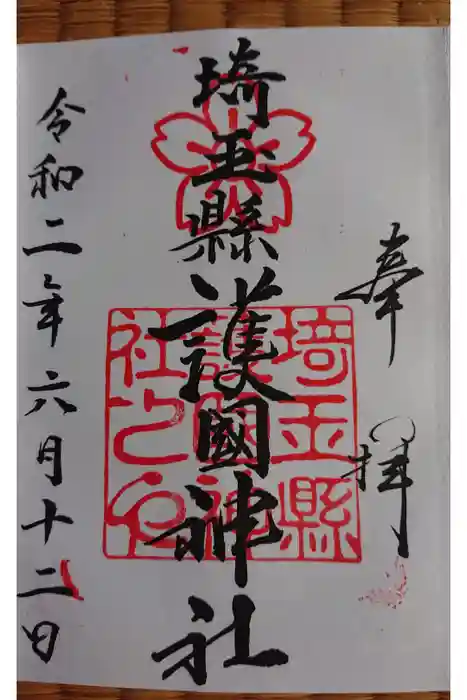 奉拝
埼玉縣護國神社
埼玉縣
護國神
社之印
令和二年六月十二日